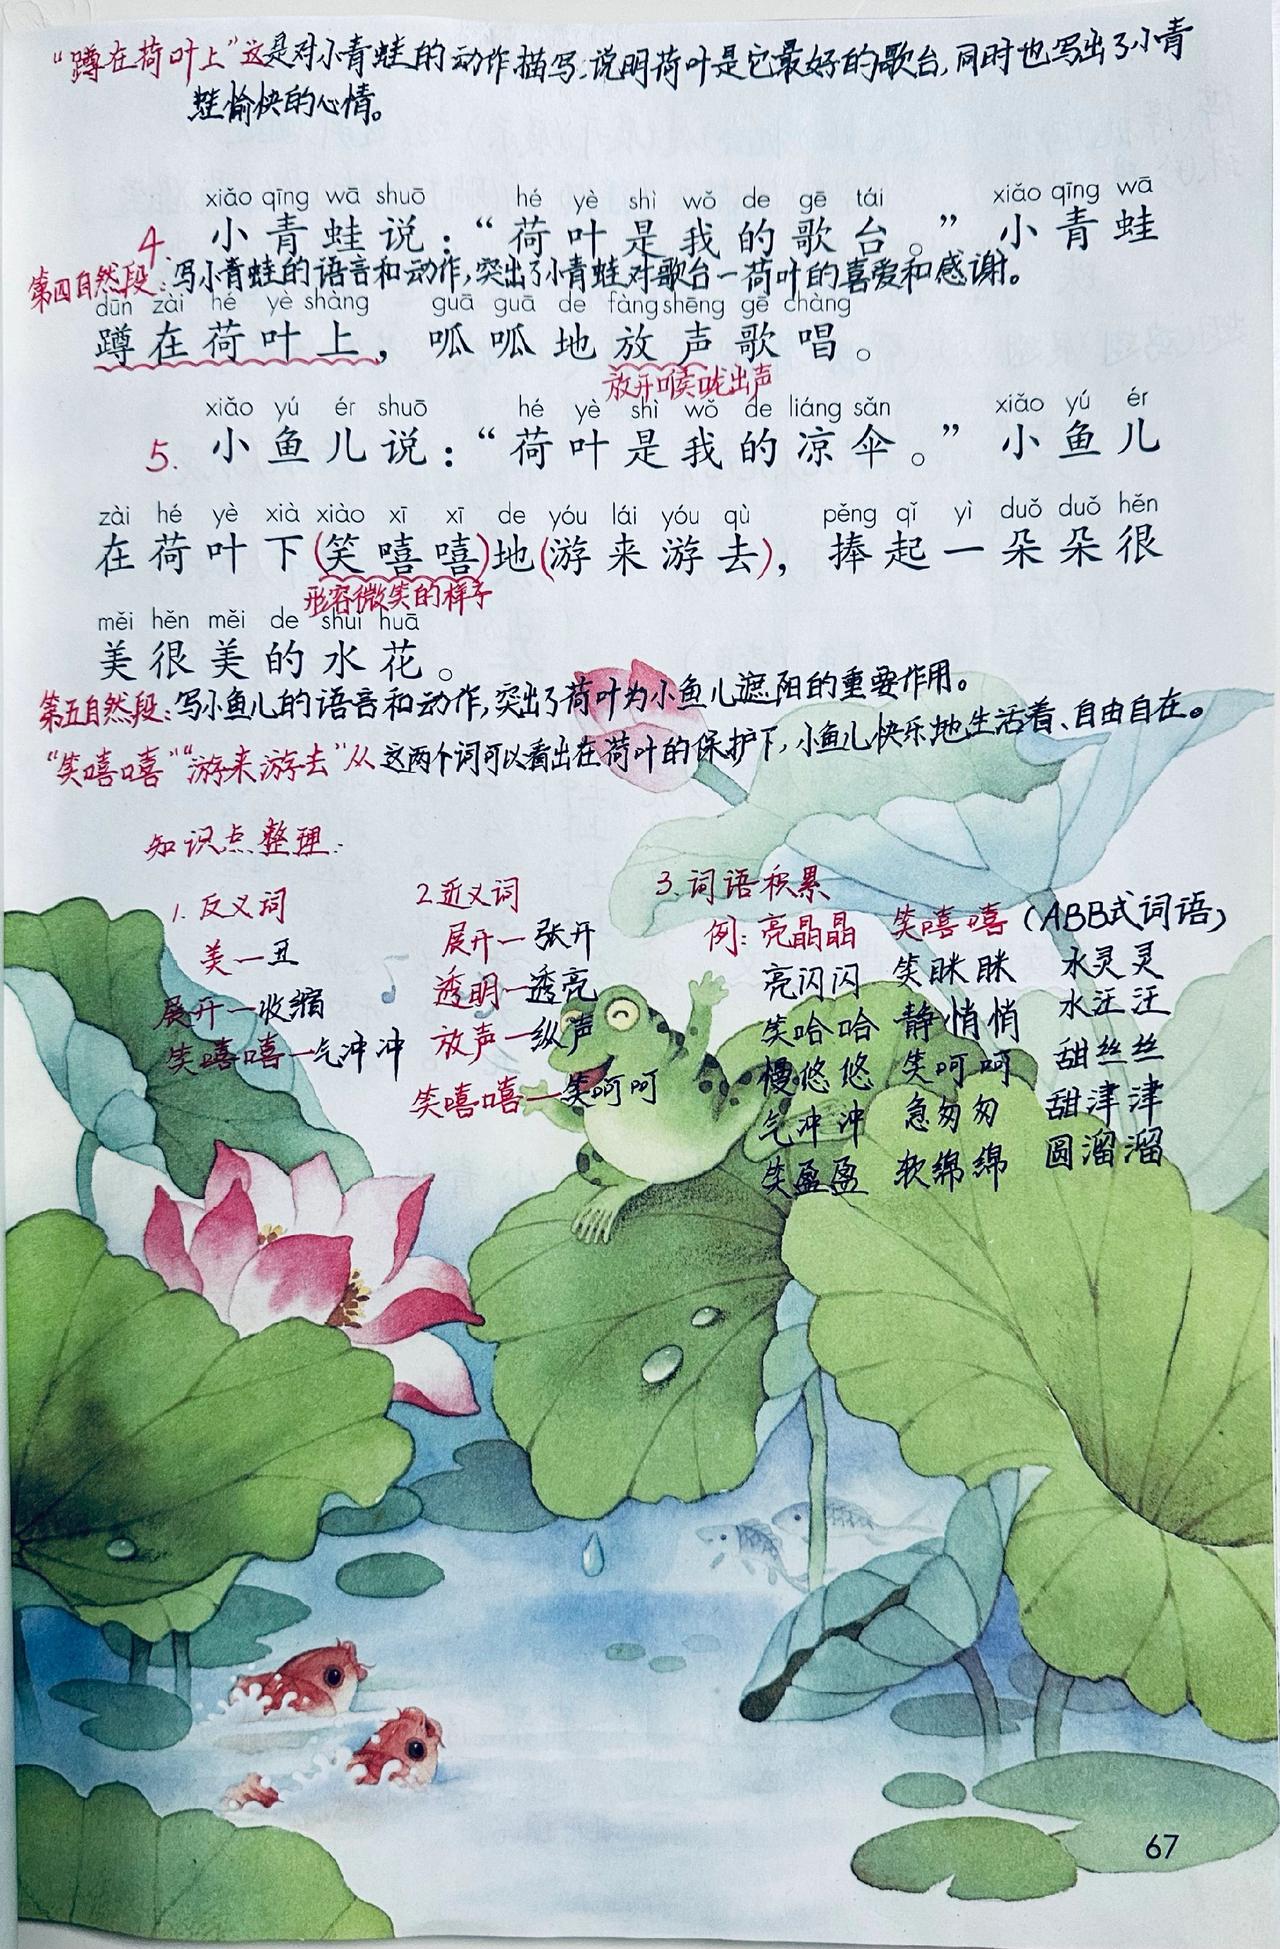 “蹲在荷叶上”这是对小青蛙的动作描写,说明荷叶是它最好的歌台,同时也写出了小青
蛙愉快的心情。
xiǎo qīng wā shuō hé yè shì wǒ de gē tái xiǎo qīng wā
4. 小青蛙说：“荷叶是我的歌台。”小青蛙
第四自然段:写小青蛙的语言和动作,突出了小青蛙对歌台一荷叶的喜爱和感谢。
dūn zài hé yè shàng guā guā de fàng shēng gē chàng
蹲在荷叶上，呱呱地放声歌唱。
放开喉咙出声
xiǎo yú ér shuō hé yè shì wǒ de liáng sǎn xiǎo yú ér
5. 小鱼儿说：“荷叶是我的凉伞。”小鱼儿
zài hé yè xià xiào xī xī de yóu lái yóu qù pěng qǐ yì duǒ duǒ hěn
在荷叶下(笑嘻嘻)地(游来游去)，捧起一朵朵很
形容微笑的样子
měi hěn měi de shuǐ huā
美很美的水花。
第五自然段:写小鱼儿的语言和动作,突出了荷叶为小鱼儿遮阳的重要作用。
“笑嘻嘻”“游来游去”从这两个词可以看出在荷叶的保护下,小鱼儿快乐地生活着、自由自在。
知识点整理:
1. 反义词
美一丑
展开一收缩
笑嘻嘻一气冲冲
2.近义词
展开一张开
透明一透亮
放声一纵声
笑嘻嘻一笑呵呵
3. 词语积累
例: 亮晶晶 笑嘻嘻 (ABB式词语)
亮闪闪 笑眯眯 水灵灵
笑哈哈 静悄悄 水汪汪
慢悠悠 笑呵呵 甜丝丝
气冲冲 急匆匆 甜津津
笑盈盈 软绵绵 圆溜溜
67